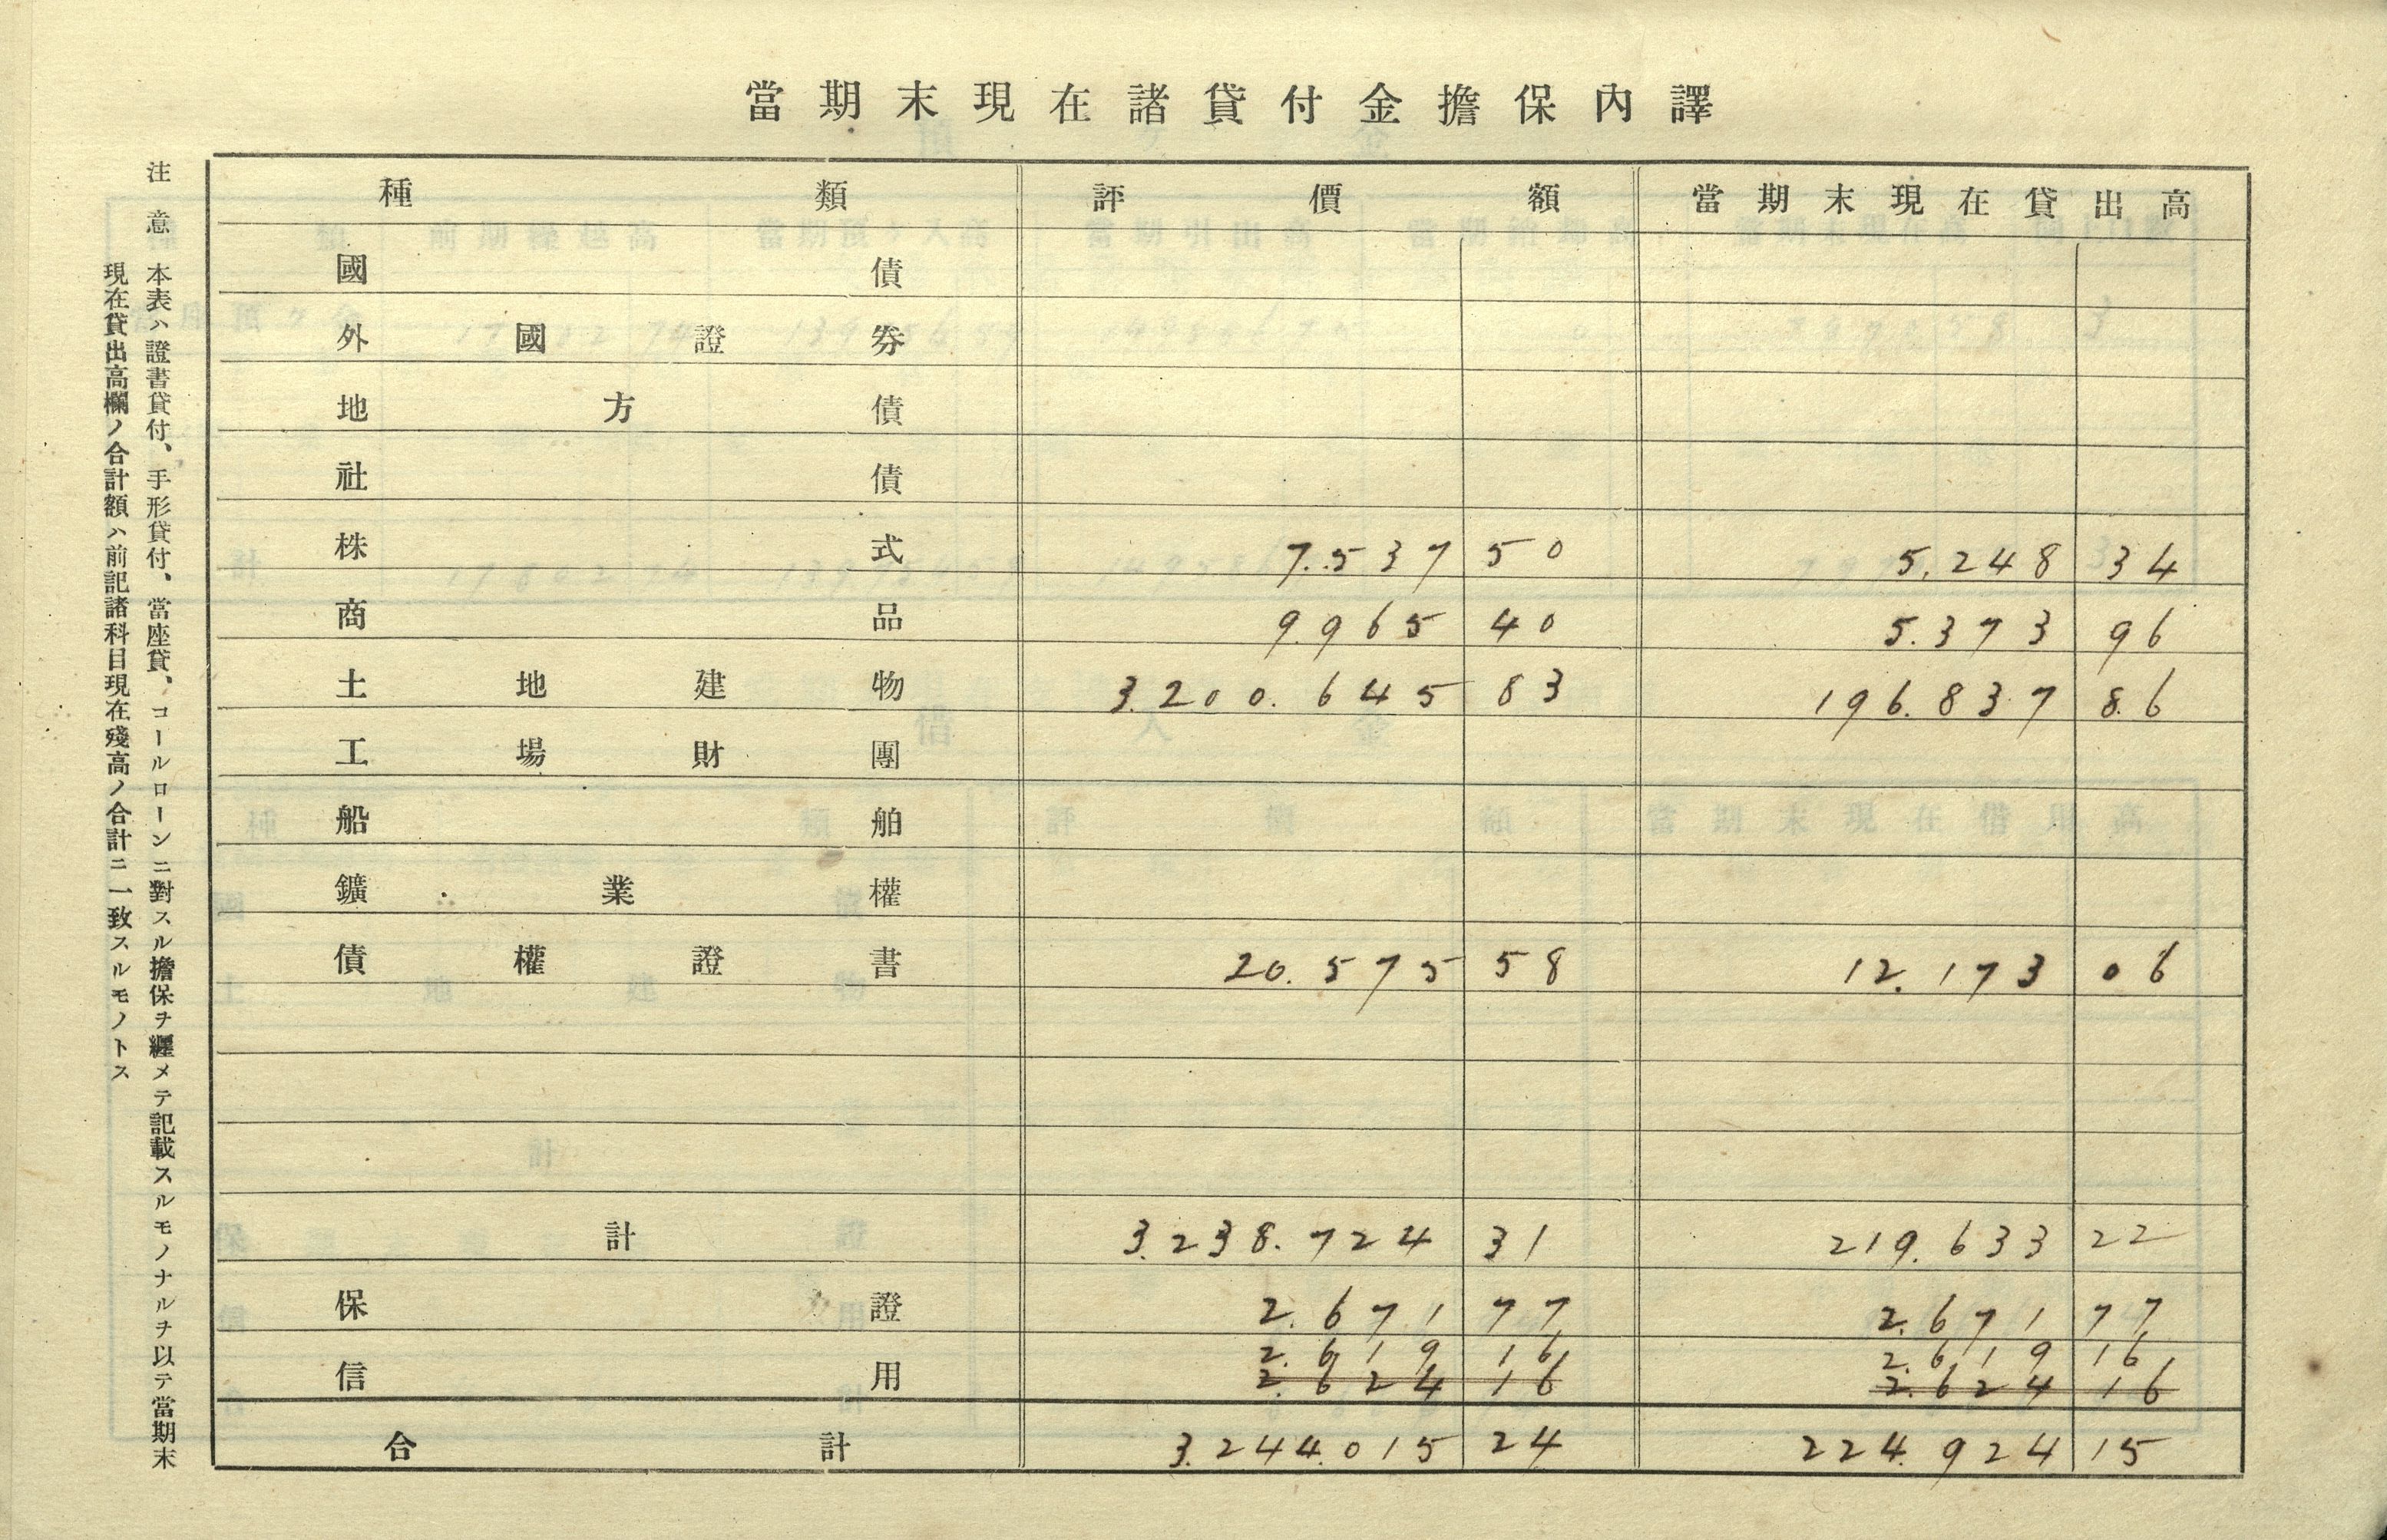 當期末現在諸貸付金擔保內譯
種類 評價額 當期末現在貸出高
國債
外國證券
地方債
社債
株式 7.537 50 5.248 34
商品 9.965 40 5.373 96
土地建物 3.200.645 83 196.837 86
工場財團
船舶
鑛業權
債權證書 20.575 58 12.173 06
計 3.238.724 31 219.633 22
保證 2.671 77 2.671 77
2.619 16 2.619 16
信用 2.624 16 2.624 16
合計 3.244.015 24 224.924 15
注意 本表ハ證書貸付、手形貸付、當座貸、コールローンニ對スル擔保ヲ纒メテ記載スルモノナルヲ以テ當期末
現在貸出高欄ノ合計額ハ前記諸科目現在殘高ノ合計ニ一致スルモノトス